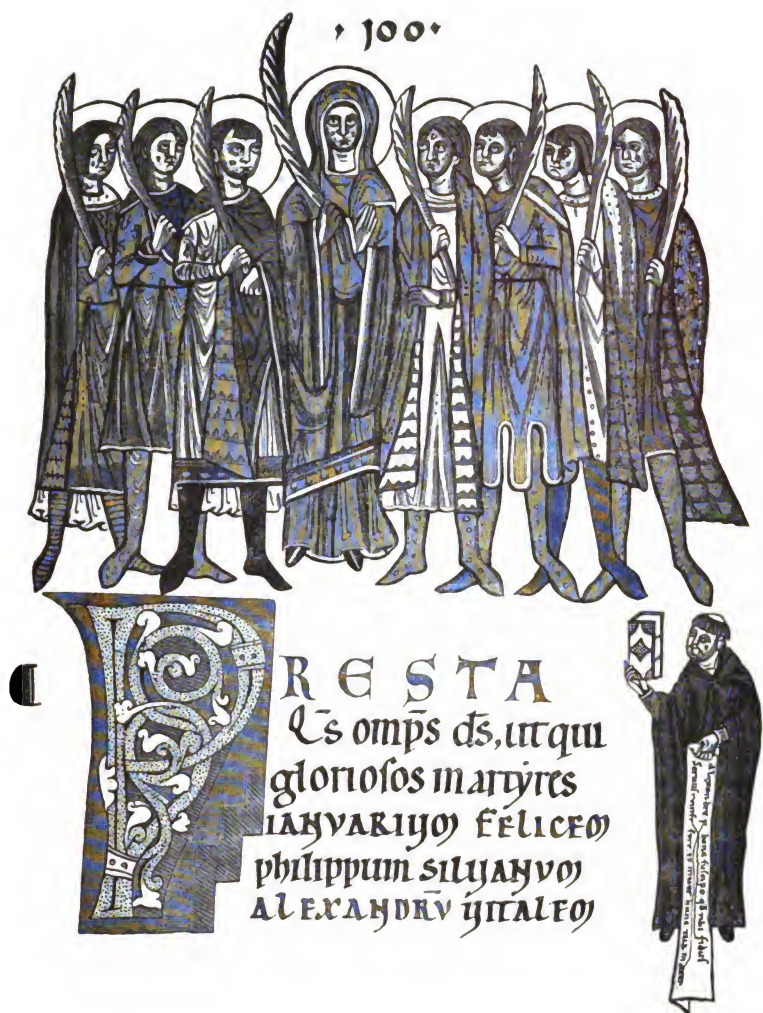 · 100 ·
PRESTA
Q̄s omp̄s d̄s, ut qui
glorioſos martyres
IANVARIUM FELICEM
philippum SILUANVM
ALEXANDRV̄ UITALEM